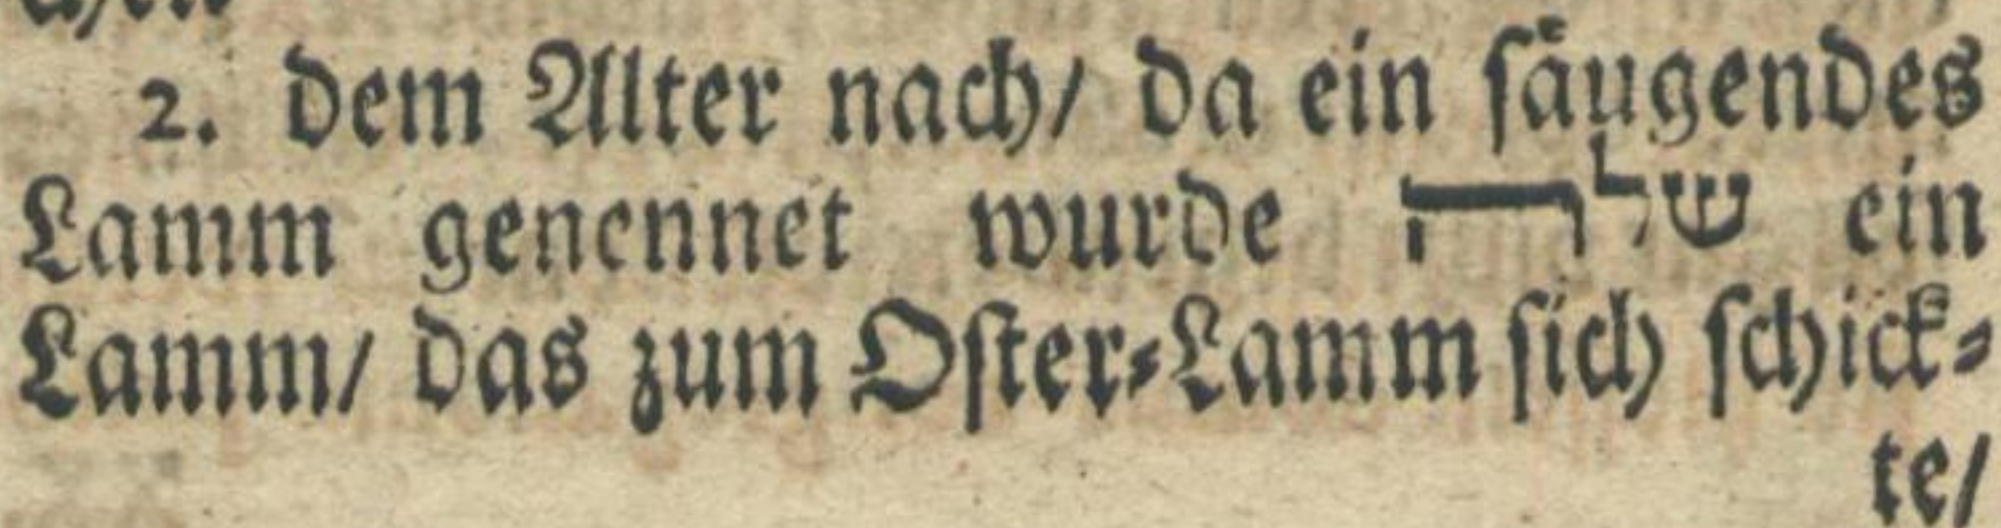 2. dem Alter nach/ da ein ſäugendes
Lamm genennet wurde שלה ein
Lamm/ das zum Oſter⸗Lamm ſich ſchick⸗
te/